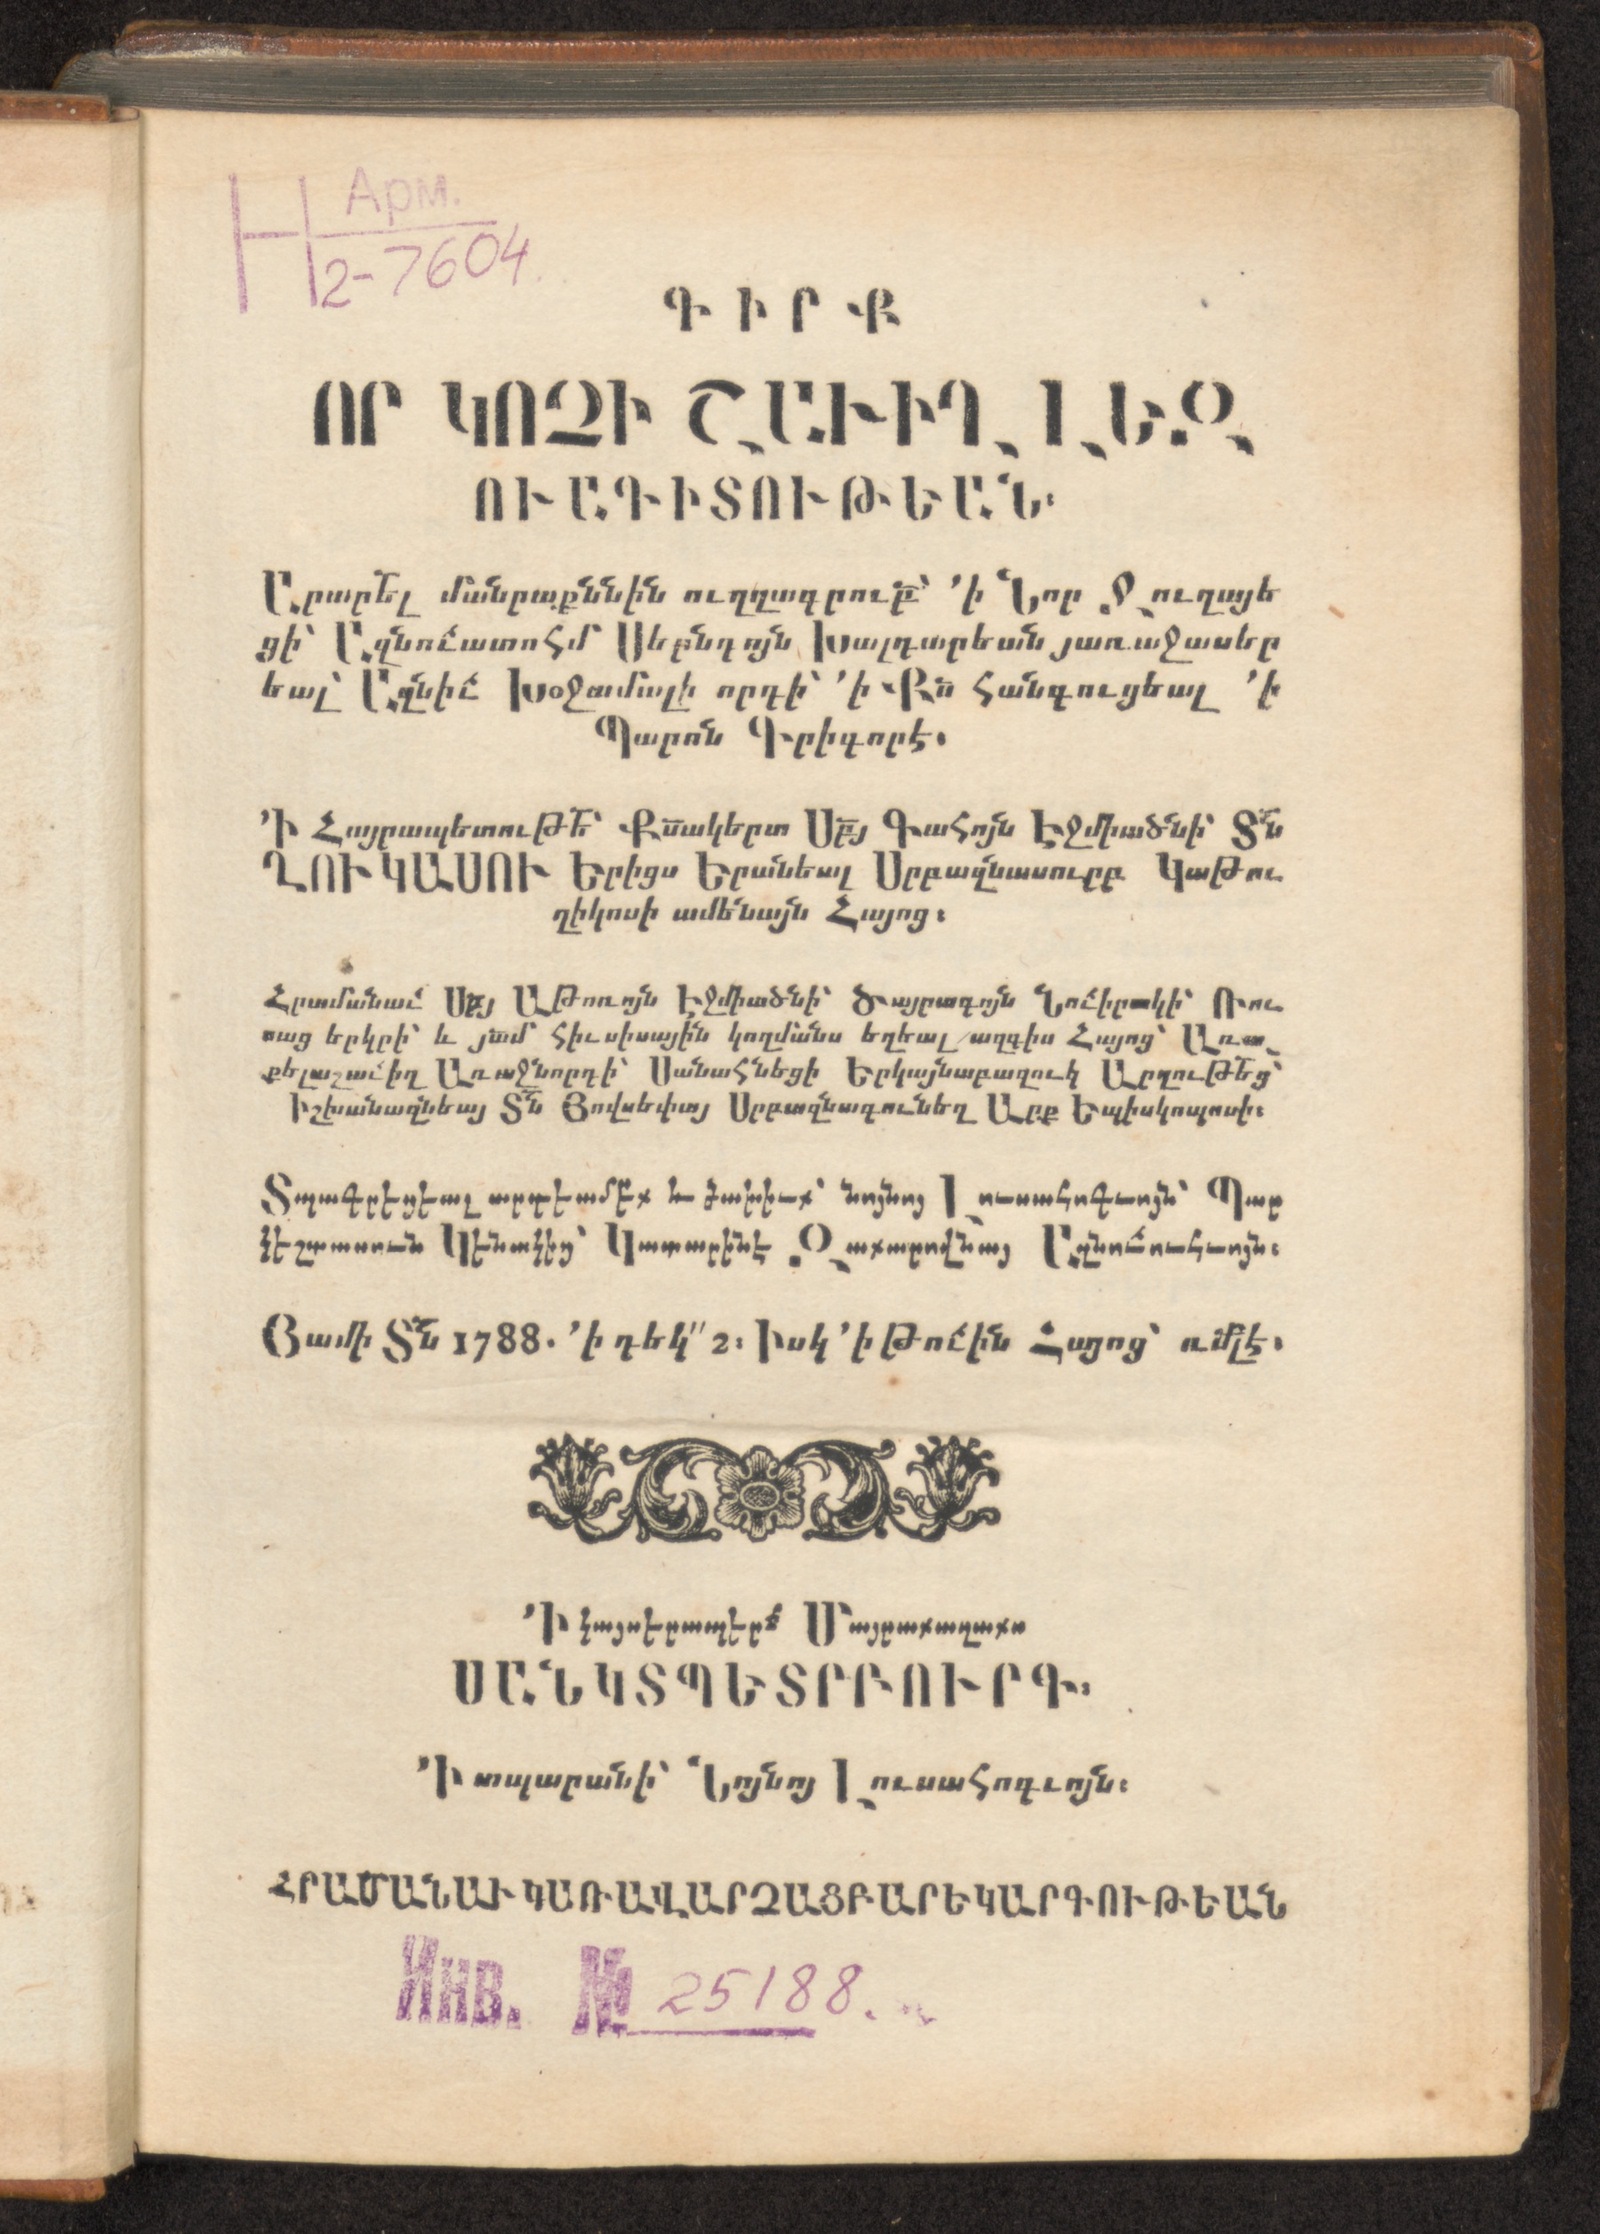 Арм.
2-7604
ԳԻՐՔ
ՈՐ ԿՈՉԻ ՇԱՒԻՂ ԼԵԶ
ՈՒԱԳԻՏՈՒԹԵԱՆ։
Արարել մանրաքննին ուղղագրուբ՝ ՚ի Նոր Ջուղայե
ցի՝ Ազնուատոհմ Սեքնդոյն Խալդարեան յառաջասեր
եալ՝ Ազնիւ Խօջամալի որդի՝ ՚ի Քս հանգուցեալ ՚ի
Պարոն Գրիգորէ։
՚Ի Հայրապետութե՝ Քսակերտ Սբյ Գահոյն Էջմիածնի՝ Տն
ՂՈՒԿԱՍՈՒ Երիցս Երանեալ Սրբազնասուրբ Կաթու
ղիկոսի ամենայն Հայոց։
Հրամանաւ Սբյ Աթոռոյն Էջմիածնի՝ Ծայրագոյն Նուիրակի՝ Ռու
սաց երկրի՝ և յամ հիւսիսային կողմանս եղեալ ազգիս Հայոց՝ Առա
քելաշաւիղ Առաջնորդի՝ Սանահնեցի Երկայնաբազուկ Արղութեց՝
Իշխանազնեայ Տն Յովսեփայ Սրբազնագունեղ Արք Եպիսկոպոսի։
Տպագրեցեալ արդեամբք և ծախիւք՝ նոյնոյ Լուսահոգւոյն՝ Պար
կեշտասուն Կենակից՝ Կատարինէ Զաքարովնայ Ազնուուհւոյն։
Յամի Տն 1788. ՚ի դեկ՛՛ 2։ Իսկ ՚ի թուին Հայոց՝ ռմլէ։
՚Ի կայսերապէրճ Մայրաքաղաքս
ՍԱՆԿՏՊԵՏՐԲՈՒՐԳ։
՚Ի տպարանի՝ Նոյնոյ Լուսահոգւոյն։
ՀՐԱՄԱՆԱՒ ԿԱՌԱՎԱՐՉԱՑ ԲԱՐԵԿԱՐԳՈՒԹԵԱՆ
Инв. № 25188.